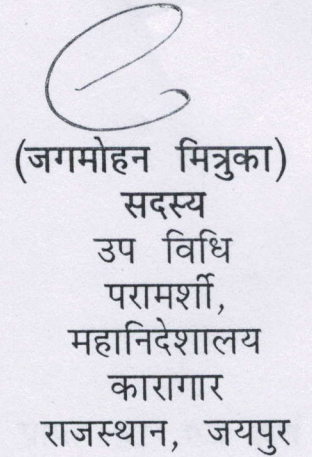 (जगमोहन मित्रुका)
सदस्य
उप विधि
परामर्शी,
महानिदेशालय
कारागार
राजस्थान, जयपुर